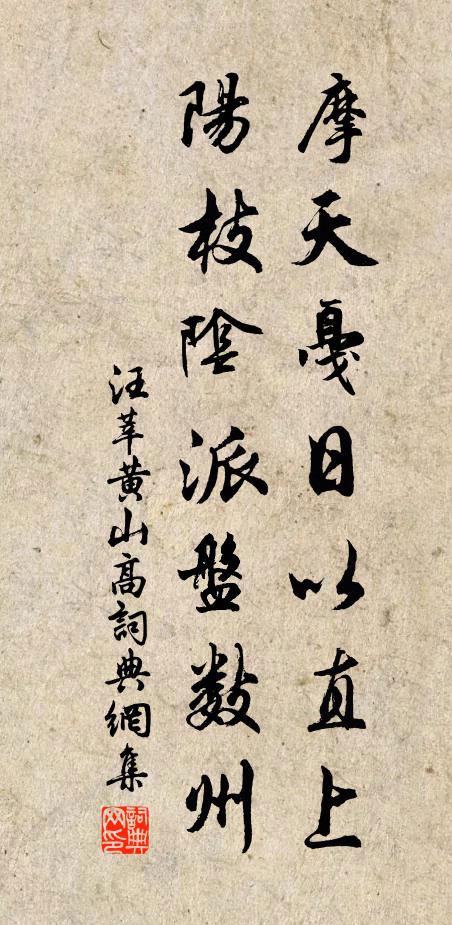 摩天戛日以直上
陽枝陰派盤数州
汪莘黄山高詞典網集
詞典网印